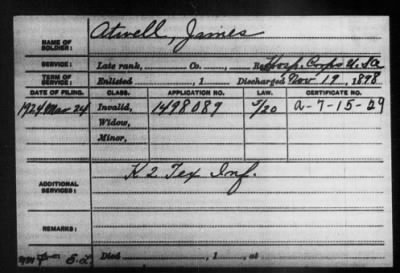 NAME OF SOLDIER: Atwell, James
SERVICE: Late rank, Co. , Reg Hosp. Corps U.S.A
TERM OF SERVICE: Enlisted , 1 Discharged Nov 19, 1898
DATE OF FILING. CLASS. APPLICATION NO. LAW. CERTIFICATE NO.
1924 Mar 24 Invalid, 1498089 a-7-15-29
Widow,
Minor,
ADDITIONAL SERVICES: K 2 Tex Inf.
REMARKS:
Died , 1 , at